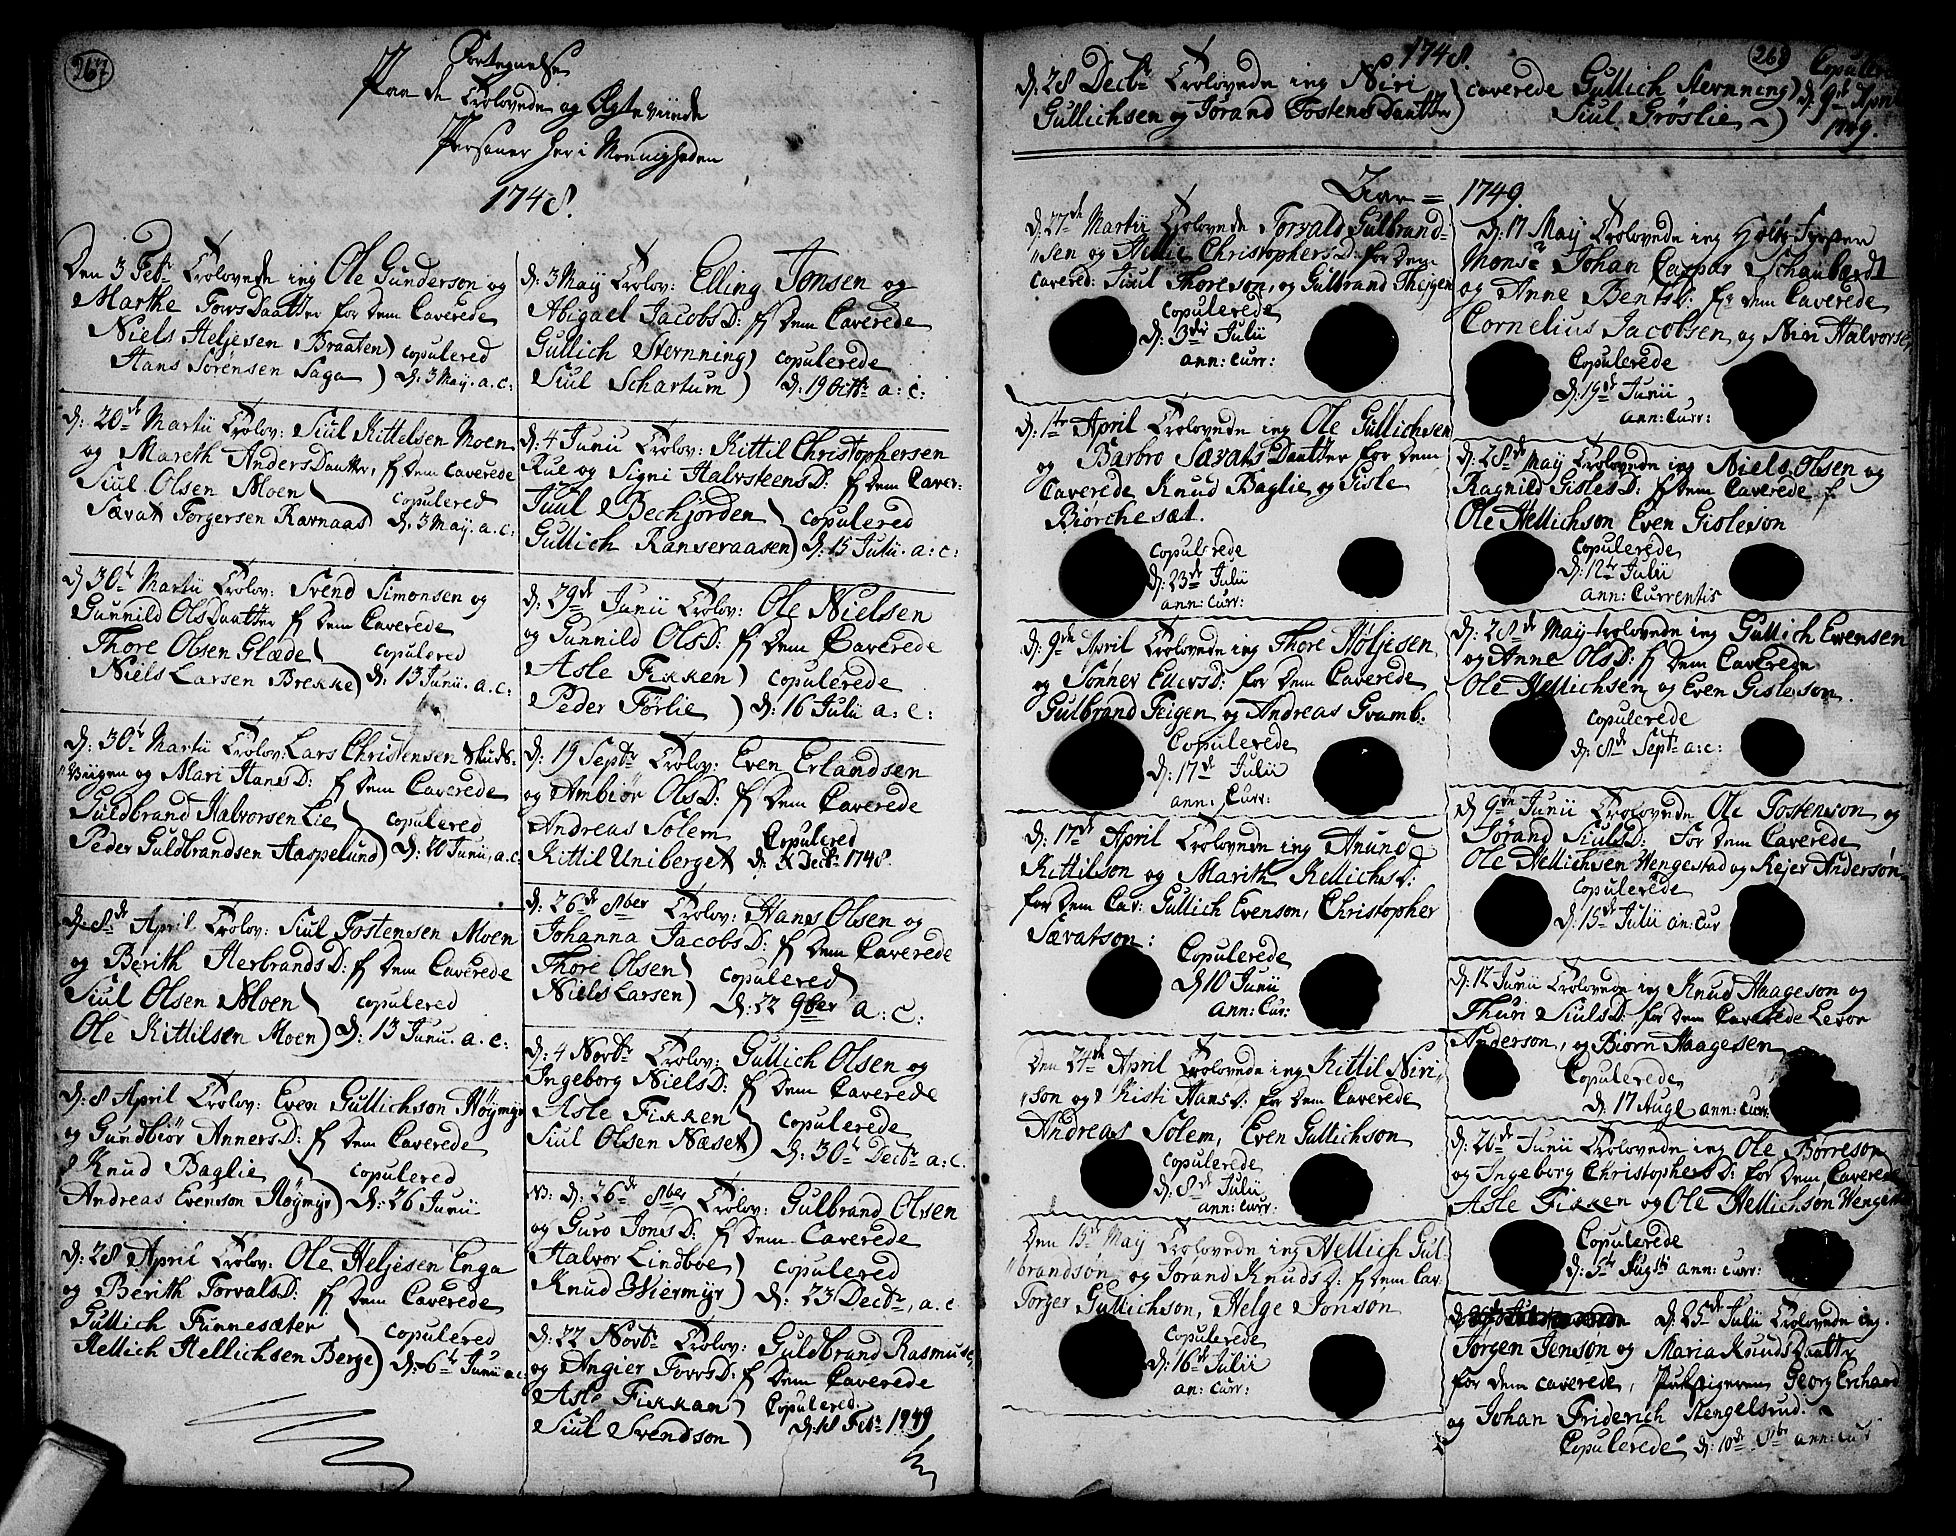 267
Fortegnelse
Paa de Trolovede og Ægteviede
Personer her i Meenigheden
1748.
Den 3 Febr: Trolovede ieg Ole Gunderson og
Marthe TorrsDaatter for dem Caverede
Niels Heljesen Braaten) copulered
Hans Sørensen Saga) d: 3 May. a. c:
d: 20de Martii Trolov: Siul Kittelsen Moen
og Mareth AndersDaatter, f dem Caverede
Siul Olsen Moen) copulered
Sævat Torgersen Ravnaas d: 3 May. a. c:
d 30t Martii Trolov: Svend Simonsen og
Gunnild OlsDaatter f dem Caverede
Thore Olsen Glæde) copulered
Niels Larsen Brekke) d: 13 Junii. a. c:
d: 30t Martii Trolov: Lars Christensen Skuds-
Viigen og Mari HansD: f dem Caverede
Guldbrand Halvorsen Lie) copulered
Peder Guldbrandsen Haspelund) d: 20 Junii, a. c
d: 8de April Trolov: Siul Tostensen Moen
og Berith HerbrandsD: f dem Caverede
Siul Olsen Moen) copulered
Ole Kittilsen Moen) d: 13 Junii. a. c:
d: 8 April Trolov: Even Gullichson Høymyr
og Gundbiør AnnersD: f dem Caverede
Knud Baglie) copulered
Andreas Evenson Høymyr) d: 26 Junii
d: 28 April Trolov: Ole Heljesen Enga
og Berith TorvalsD: f dem Caverede
Gullich Funnesæter) copulered
Hellich Hellichsen Berge) d: 6t Junii a c:
d: 3 May Trolov: Elling Jonsen og
Abigael JacobsD: f dem Caverede
Gullich Sternning) copulerede
Siul Schartum) d: 19 Octbr a: c:
d: 4 Junii Trolov: Kittil Christophersen
Rue og Signi HalvsteensD: f dem Caver:
Juul Bechjorden) copulered
Gullich Ranseraasen) d: 15 Julii. a: c:
d: 29de Junii Trolov: Ole Nielsen
og Gunnild OlsD: f dem Caverede
Asle Fikken) copulerede
Peder Førlie) d: 16 Julii a: c:
d: 19 Septr Trolov: Even Erlandsen
og Ambiør OlsD: f dem Caverede
Andreas Solem Copulered
Kittil Uniberget d: Decbr: 1748.
d: 26de 8ber Trolov: Hans Olsen og
Johanna JacobsD: f dem Caverede
Thore Olsen) copulered
Niels Larsen) d: 22 9ber a: c:
d: 4 Novbr Trolov: Gullich Olsen og
Ingeborg NielsD: f dem Caverede
Asle Fikken) copulerede
Siul Olsen Næset) d: 30t Decbr a: c.
N: d: 26de 8ber Trolov: Gulbrand Olsen
og Guro JonsD: f dem Caverede
Halvor Lindboe) copulered
Knud Miermyr) d: 23 Decbr, a. c
d: 22 Novbr Trolov: Guldbrand Rasmuse,
og Angier TorrsD: f dem Caverede
Asle Fikkan) Copulered.
Siul Svendson) d: 18 Febr: 1749
1748. 269
d: 28 Decbr Trolovede ieg Niri) caverede Gullich Sternning) Copulere
Gullichsen og Jorand TostensDaatter) Siul Grøslie) d: 9de April
1749.
Aar = 1749.
d: 27de Martii Trolovede Torvald Gulbrand-
sen og Hellie ChristophersD: for dem
Cavered: Juul Thoreson, og Gulbrand Theigen
Copulerede
d: 3die Julii
ann: curr:
d: 1te April Trolovede ieg Ole Gullichsen
og Barbro SævatsDaatter for dem
Caverede Knud Baglie og Gisle
Biørchesæt.
Copulerede
d: 23de Julii
ann: curr:
d: 9de April Trolovede ieg Thore Høljesen
og Sønnev EllersD: for dem Caverede
Gulbrand Teigen og Andreas Gramb:
Copulerede
d: 17de Julii
ann: Curr:
d: 17de April Trolovede ieg Anund
Kittilson og Marith KellichsD:
for dem Cav: Gullich Evenson, Christopher
Sævatson:
Copulerede
d 10 Junii
ann: Cur:
Den 24de April Trolovede ieg Kittil Niri,
son og Kisti HansD: for dem Caverede
Andreas Solem, Even Gullichson
Copulerede
d: 8de Julii
ann: curr:
Den 15t May Trolovede ieg Hellich Gul-
brandsøn og Jorand KnudsD: f dem Cav:
Torger Gullichson, Helge Jonsøn
Copulerede
d: 16t Julii
an: curr:
d: 17 May Trolovede ieg
Monsr Johan Caspar Schaubardt
og Anne BentsD: fr dem Caverede
Cornelius Jacobsen og Niri Halvorsen
Copulerede
d: 19de Junii
ann: Curr:
d: 28de May Trolovede ieg Niels Olsen og
Ragnild GislesD: f dem Caverede f
Ole Hellichson Even Gisleson
Copulerede
d: 12te Julii
ann: Currentis
d: 28de May trolovede ieg Gullich Evensen
og Anne OlsD: f dem Caverede
Ole Hellichsen og Even Gisleson.
copulerede
d: 8de Septr: a: c:
d 9de Junii Trolovede Ole Tostenson og
Jorand SiulsD: For dem Caverede
Ole Hellichsen Wengestad og Rejer Andersøn
Copulerede
d: 15de Julii an: cur
d: 12 Junii Trolovede ieg Knud Haageson og
Thuri SiulsD: for dem Caverede Levor
Anderson, og Biørn Haagesen
Copulerede
d: 17 Augt ann: curr:
d: 20de Junii Trolovede ieg Ole Børreson
og Ingeborg ChristophersD: for dem Caverede
Asle Fikken og Ole Hellichson Wenge
Copulerede
d: 5te Augsti ann: curr:
d: 25de Julii Trolovede ieg.
Jørgen Jensøn og Maria KnudsDaatter
for dem caverede, Georg Erchard
og Johan Friderich Stengelsrud.
Copulerede d: 10de 8br ann: cur